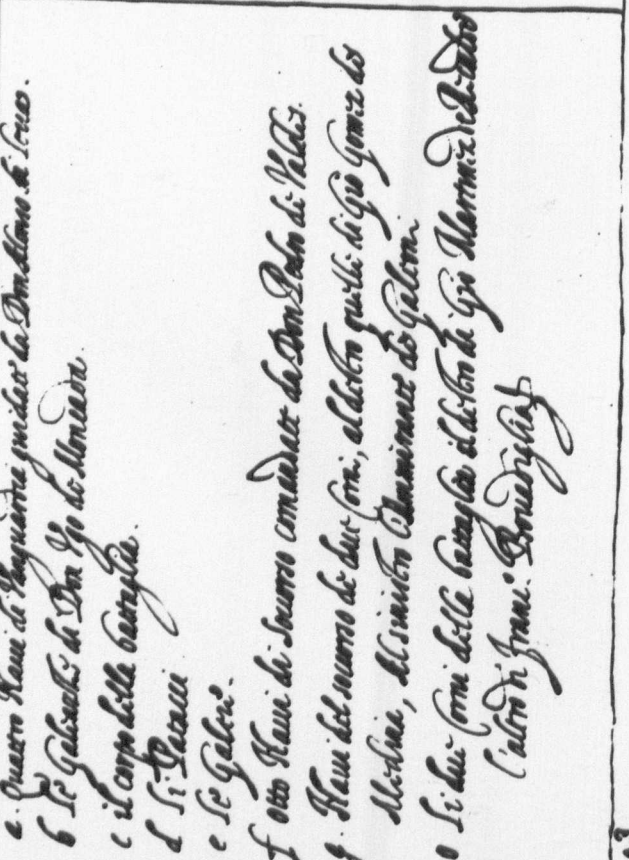 a. Quattro Naui di Vanguardia guidate da Don Alonso di Leua.
b Le Galeazze di Don Ugo di Moncada.
c il corpo della battaglia.
d Li Pataui
e Le Galere.
f otto Naui di soccorso comandate da Don Pedro di Valdes.
g. Naui del soccorso de due Corni, al destro quelle di Gio Gomez de
Medina, al sinistro Ammirante de Galeoni
o Li due Corni della battaglia il destro di Gio Martinez de Ricalde
l'altro di Franc.º Bouadiglia